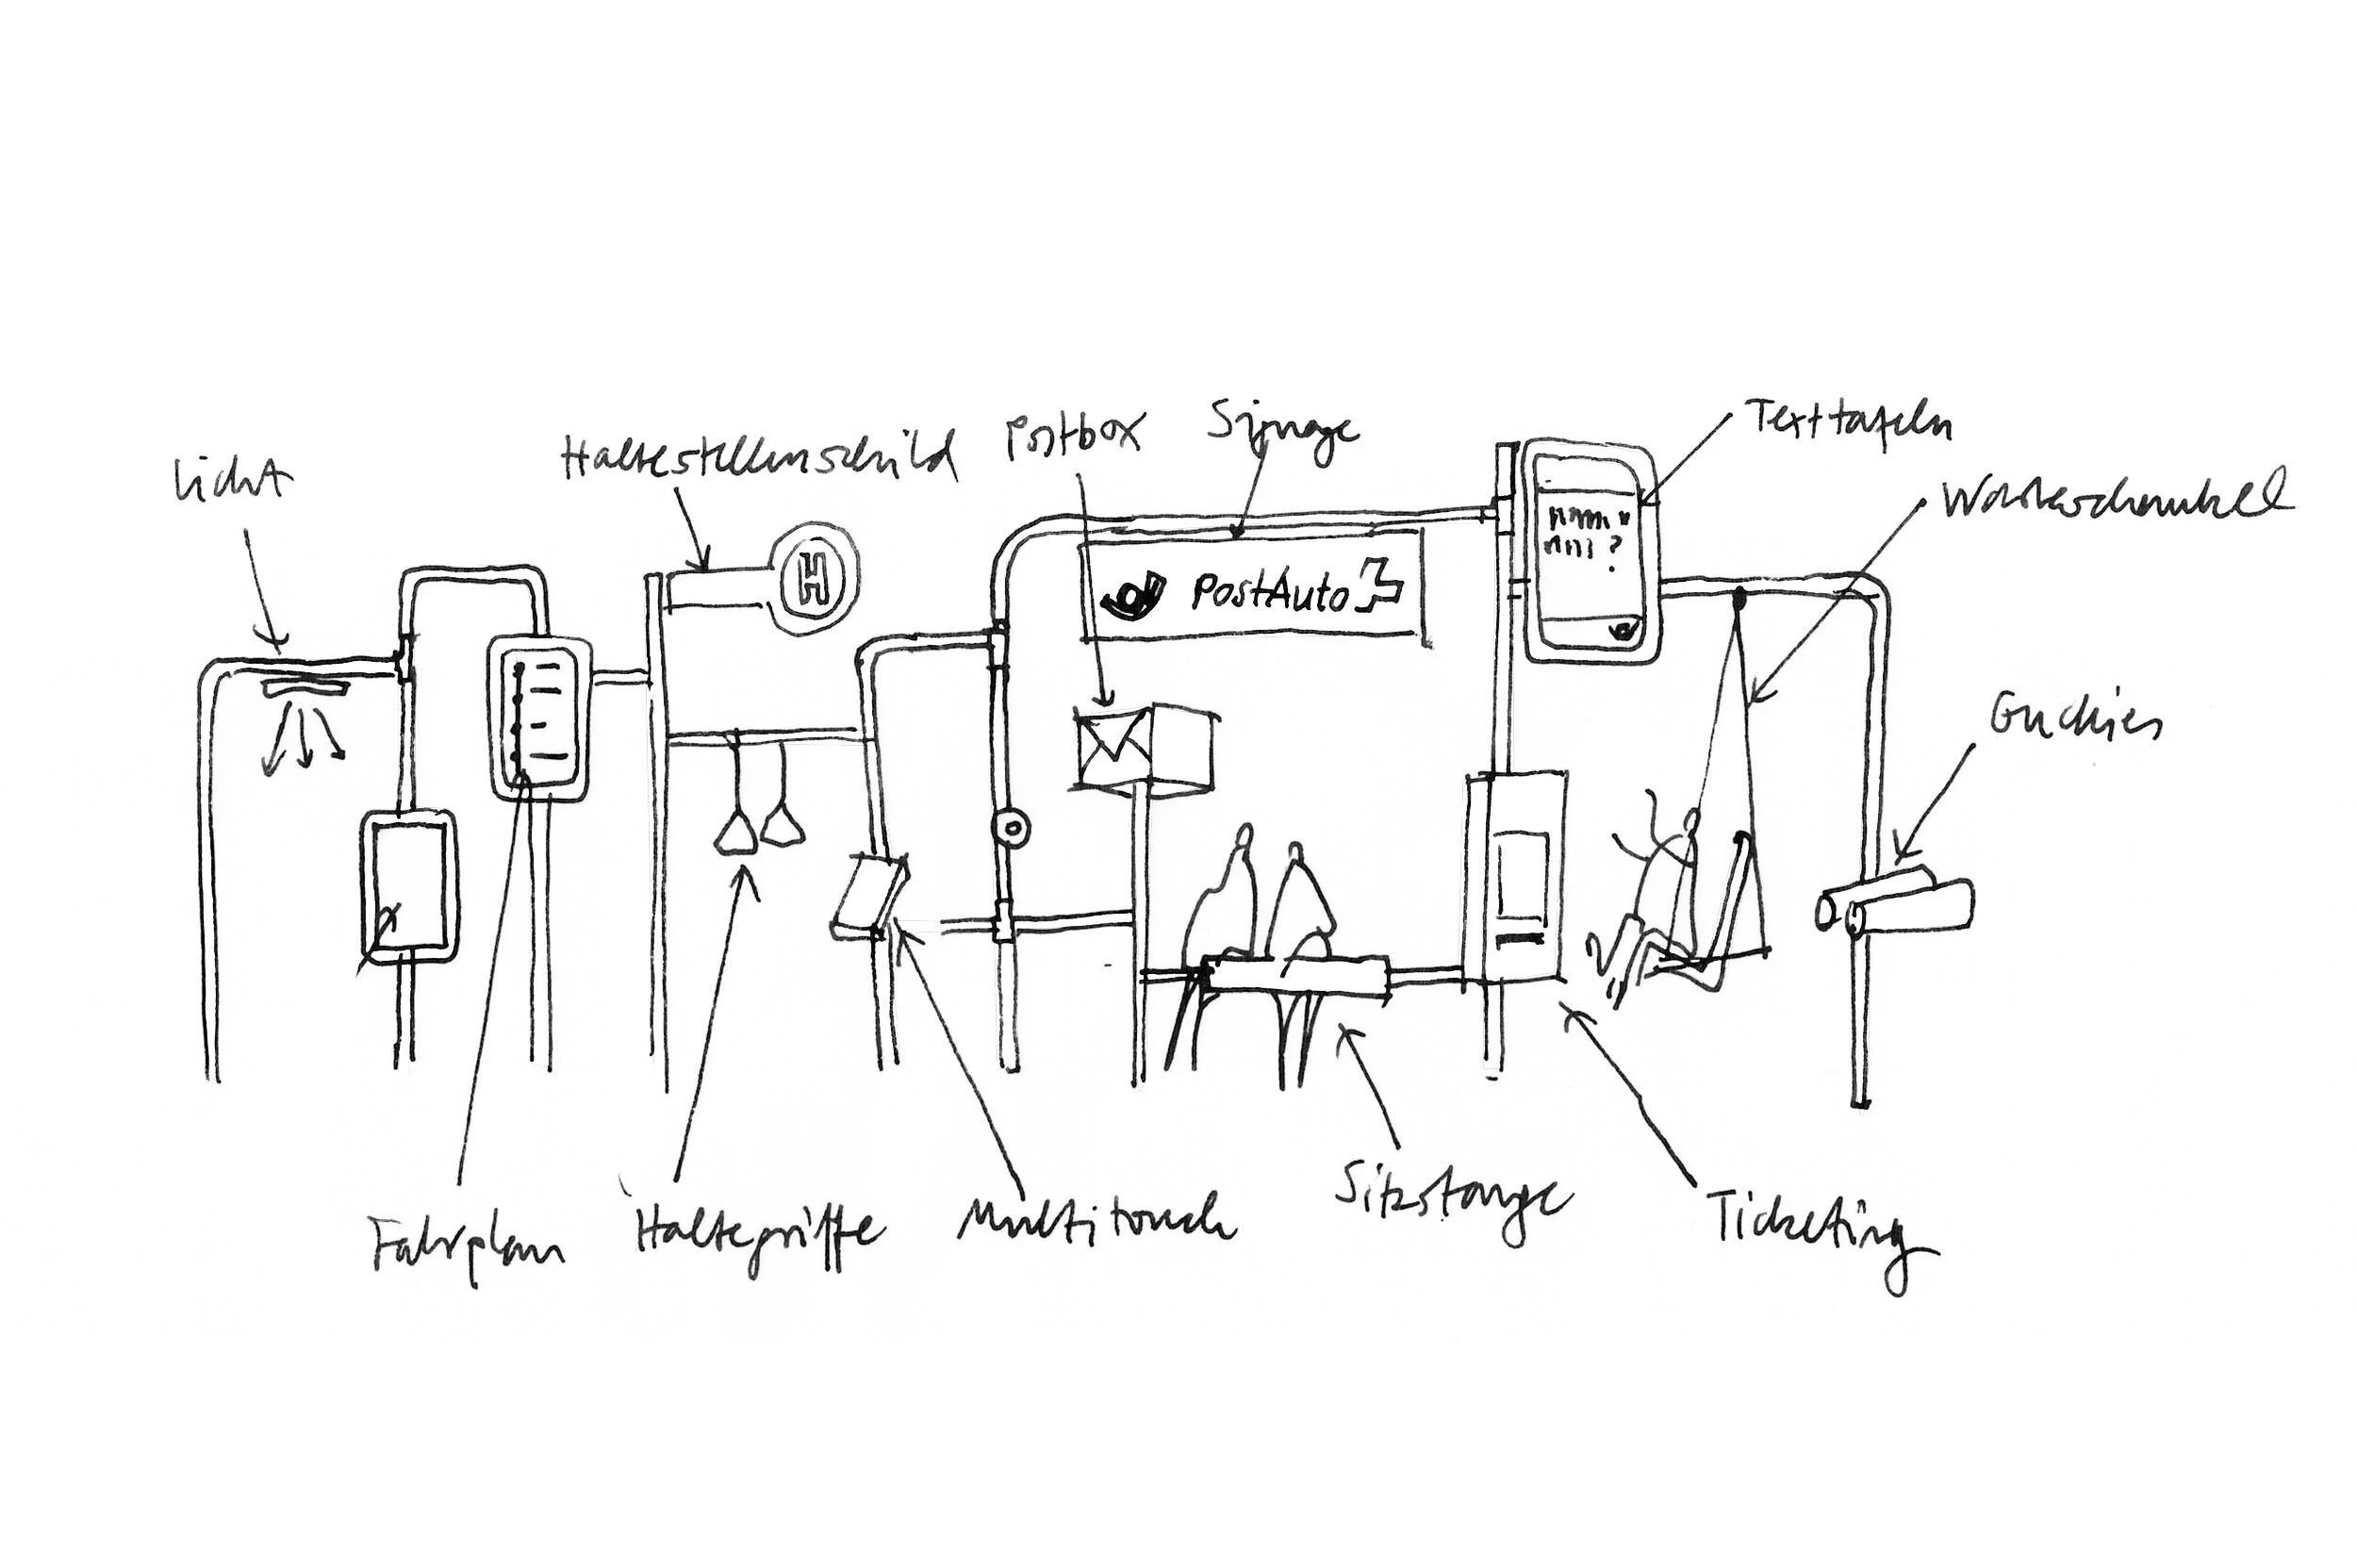 Licht
Haltestellenschild
Postbox
Signage
Texttafeln
Warteschaukel
Guckies
H
PostAuto
?
Fahrplan
Haltegriffe
Multitouch
Sitzstange
Ticketing